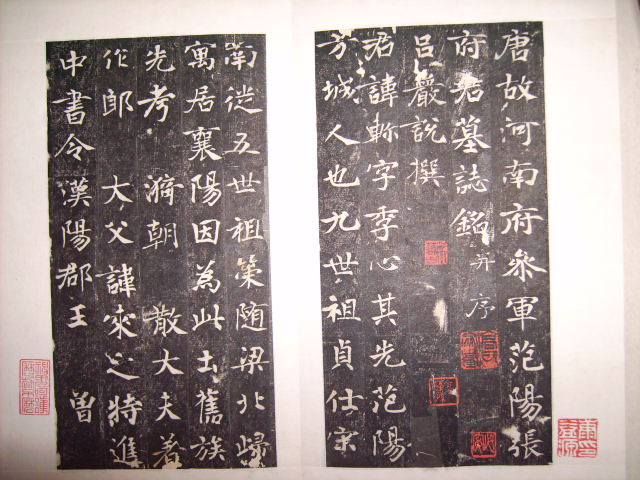 唐故河南府叅軍范陽張
府君墓誌銘并序
呂巖說撰
君諱軫字季心其先范陽
方城人也九世祖貞仕宋
南徙五世祖策随梁北歸
寓居襄陽因為此土舊族
先考 漪朝 散大夫著
作郎 大父諱柬之特進
中書令漢陽郡王 曾